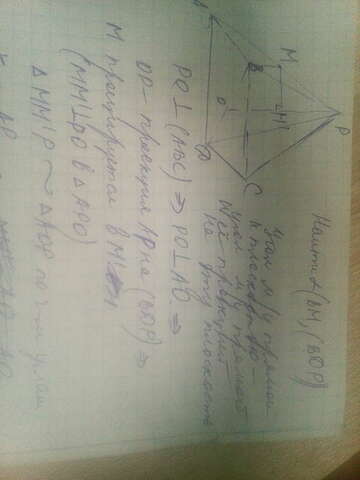 Найти ∠(DM, (BDP))
угол м/у прямой
и плоскостью –
угол м/у прямой
и её проекцией
на эту плоскость
A
B
M
P
M'
O
D
C
PO⊥(ABC) ⇒ PO⊥AO ⇒
OP – проекция AP на (BDP) ⇒
M проецируется в M'
(MM'⊥PO в △APO)
△MM'P ~ △AOP по 2-м углам